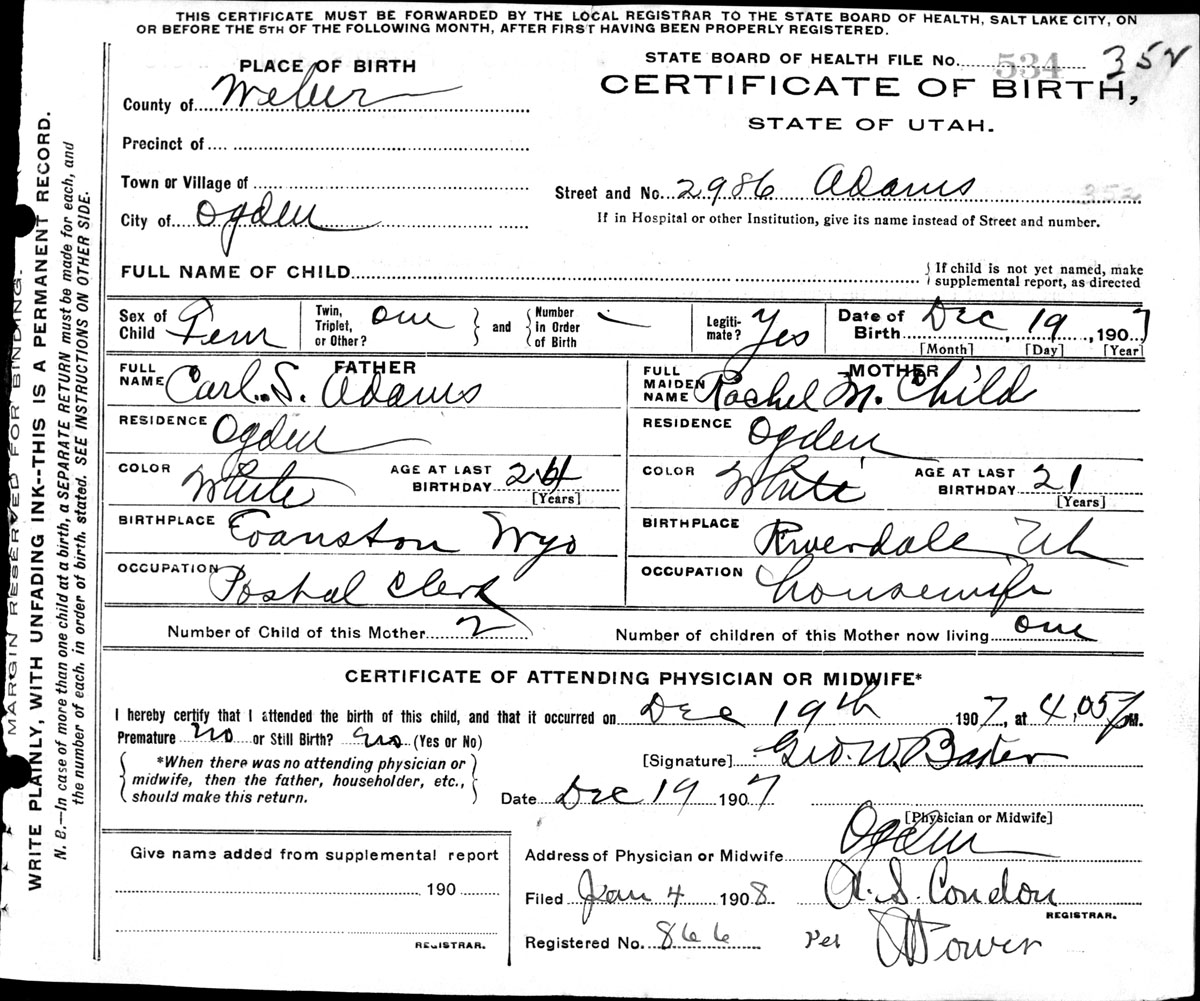 THIS CERTIFICATE MUST BE FORWARDED BY THE LOCAL REGISTRAR TO THE STATE BOARD OF HEALTH, SALT LAKE CITY, ON
OR BEFORE THE 5TH OF THE FOLLOWING MONTH, AFTER FIRST HAVING BEEN PROPERLY REGISTERED.
PLACE OF BIRTH
STATE BOARD OF HEALTH FILE No. 534 352
County of Weber
CERTIFICATE OF BIRTH,
STATE OF UTAH.
Precinct of
Town or Village of
Street and No. 2986 Adams 352
City of Ogden
If in Hospital or other Institution, give its name instead of Street and number.
FULL NAME OF CHILD
{ If child is not yet named, make
supplemental report, as directed
Sex of Child Fem
Twin, Triplet, or Other? one } and { Number in Order of Birth
Legiti-mate? Yes
Date of Birth Dec 19, 1907
[Month] [Day] [Year]
FATHER
FULL NAME Carl. S. Adams
MOTHER
FULL MAIDEN NAME Rachel M. Child
RESIDENCE Ogden
RESIDENCE Ogden
COLOR White AGE AT LAST BIRTHDAY 24 [Years]
COLOR White AGE AT LAST BIRTHDAY 21 [Years]
BIRTHPLACE Evanston Wyo
BIRTHPLACE Riverdale, Ut
OCCUPATION Postal Clerk
OCCUPATION housewife
Number of Child of this Mother 2
Number of children of this Mother now living one
CERTIFICATE OF ATTENDING PHYSICIAN OR MIDWIFE*
I hereby certify that I attended the birth of this child, and that it occurred on Dec 19th 1907, at 4,05 P M.
Premature no or Still Birth? no (Yes or No)
{ *When there was no attending physician or
midwife, then the father, householder, etc.,
should make this return. }
[Signature] Geo. W. Baker
Date Dec 19 1907
[Physician or Midwife]
Give name added from supplemental report
190
REGISTRAR.
Address of Physician or Midwife Ogden
Filed Jan 4 1908 A. S. Condon
REGISTRAR.
Registered No. 866 Per
MARGIN RESERVED FOR BINDING.
WRITE PLAINLY, WITH UNFADING INK--THIS IS A PERMANENT RECORD.
N. B.—In case of more than one child at a birth, a SEPARATE RETURN must be made for each, and
the number of each, in order of birth, stated. SEE INSTRUCTIONS ON OTHER SIDE.